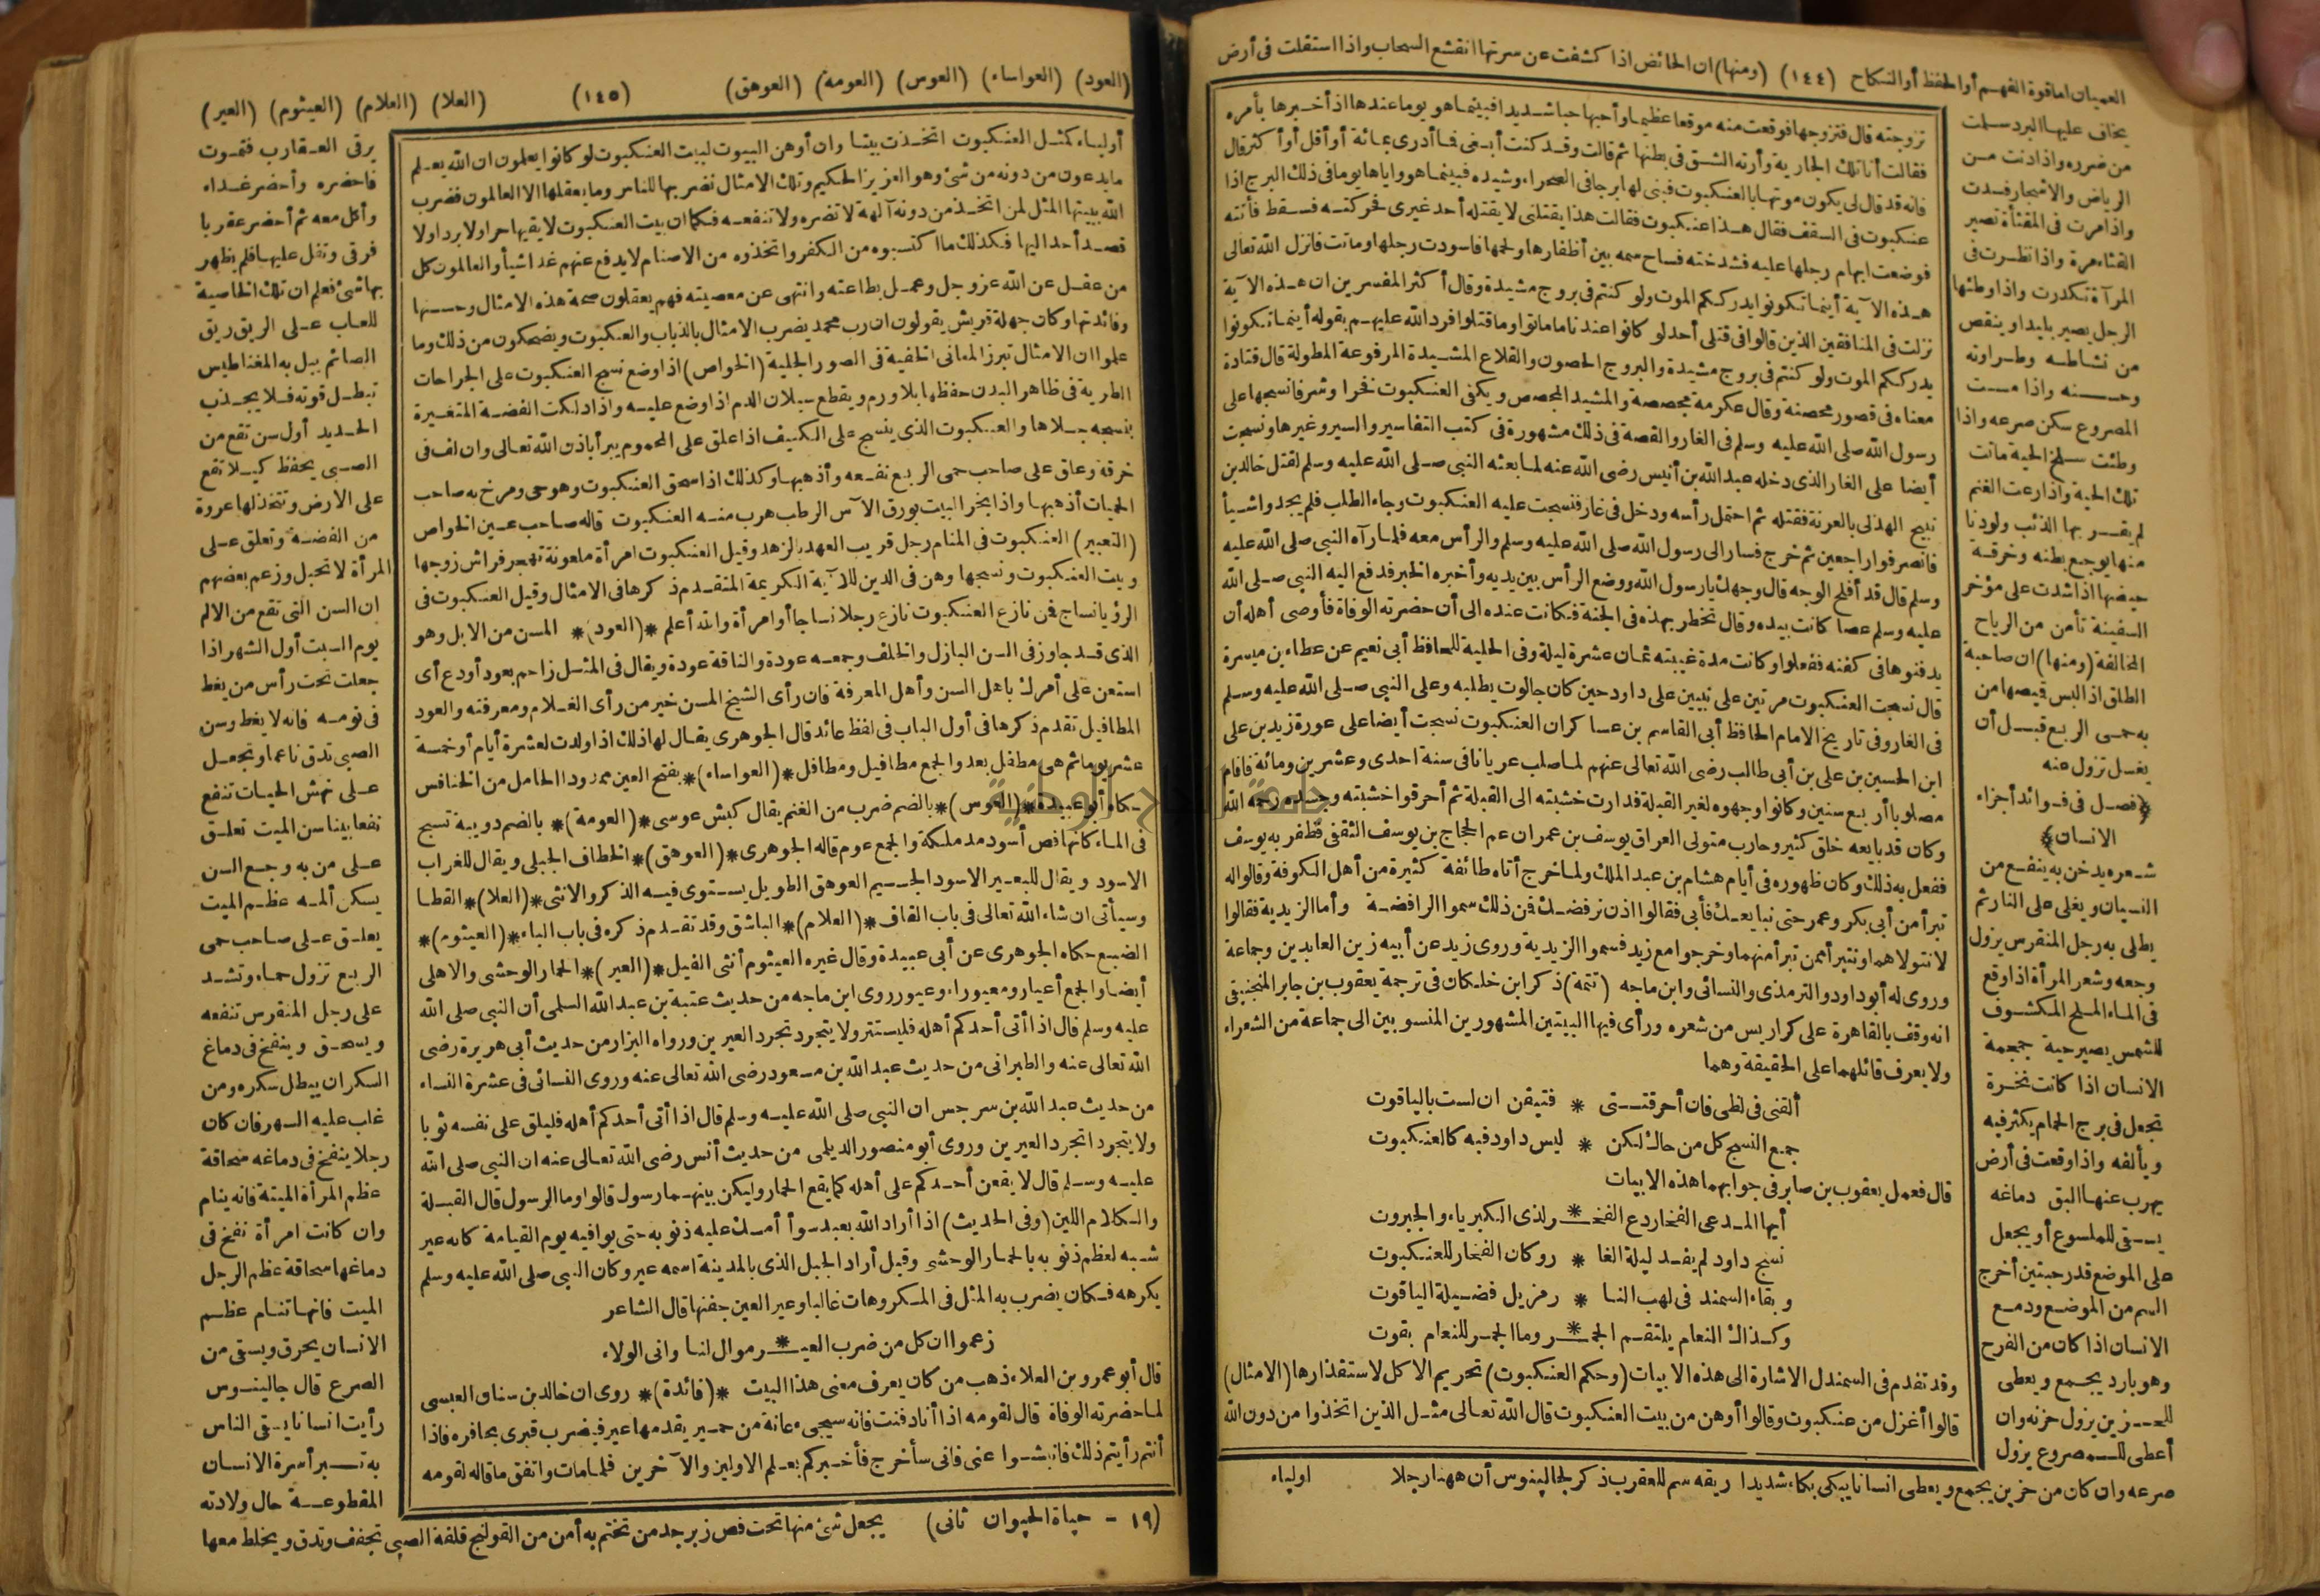 العميان اما قوة الفهم أو الحفظ أو النكاح (١٤٤) (ومنها) ان الحائض اذا كشفت عن سرتها انقشع السحاب واذا استقلت فى أرض
يخاف عليها البرد سلمت
من ضرره واذا دنت من
الرياض والاشجار فسدت
واذا مرت فى المقثأة تصير
القثاء مرة واذا نظرت فى
المرآة تكدرت واذا وطئها
الرجل يصير بليدا وينقص
من نشاطه وطراوته
وحسنه واذا مست
المصروع سكن صرعه واذا
وطئت سلخ الحية ماتت
تلك الحية واذا رعت الغنم
لم يقربها الذئب ولو دنا
منها يوجع بطنه وخرقة
حيضها اذا شدت على مؤخر
السفينة تأمن من الرياح
المخالفة (ومنها) ان صاحبة
الطلق اذا لبس قميصها من
به حمى الربع قبل أن
يغسل تزول عنه
﴿فصل فى فوائد أجزاء
الانسان﴾
شعره يدخن به ينفع من
النسيان ويغلى على النار ثم
يطلى به رجل المنقرس يزول
وجعه وشعر المرأة اذا وقع
فى الماء المالح المكشوف
للشمس يصير حية جمجمة
الانسان اذا كانت نخرة
تجعل فى برج الحمام يكثر فيه
ويألفه واذا وقعت فى أرض
يهرب عنها البق دماغه
يسقى للملسوع أو يجعل
على الموضع قدر حبتين أخرج
السم من الموضع ودمع
الانسان اذا كان من الفرح
وهو بارد يجمع ويعطى
للحزين يزول حزنه وان
أعطى للمصروع يزول
تزوجته قال فتزوجها فوقعت منه موقعا عظيما وأحبها حبا شديدا فبينما هو يوما عندها اذ أخبرها بأمره
فقالت أنا تلك الجارية وأرته الشق فى بطنها ثم قالت وقد كنت أبغى فما أدرى بمائة أو أقل أو أكثر قال
فانه قد قال لى يكون موتها بالعنكبوت فبنى لها برجا فى الصحراء وشيده فبينما هو واياها يوما فى ذلك البرج اذا
عنكبوت فى السقف فقال هذا عنكبوت فقالت هذا يقتلنى لا يقتله أحد غيرى فحركته فسقط فأتته
فوضعت ابهام رجلها عليه فشدخته فساح سمه بين أظفارها ولحمها فاسودت رجلها وماتت فانزل الله تعالى
هذه الآية أينما تكونوا يدرككم الموت ولو كنتم فى بروج مشيدة وقال أكثر المفسرين ان هذه الآية
نزلت فى المنافقين الذين قالوا فى قتلى أحد لو كانوا عندنا ما ماتوا وما قتلوا فرد الله عليهم بقوله أينما تكونوا
يدرككم الموت ولو كنتم فى بروج مشيدة والبروج الحصون والقلاع المشيدة المرفوعة المطولة قال قتادة
معناه فى قصور محصنة وقال عكرمة مجصصة والمشيد المجصص ويكفى العنكبوت فخرا وشرفا نسجها على
رسول الله صلى الله عليه وسلم فى الغار والقصة فى ذلك مشهورة فى كتب التفاسير والسير وغيرها ونسجت
أيضا على الغار الذى دخله عبد الله بن أنيس رضى الله عنه لما بعثه النبى صلى الله عليه وسلم لقتل خالد بن
نبيح الهذلى بالعرنة فقتله ثم احتمل رأسه ودخل فى غار فنسجت عليه العنكبوت وجاء الطلب فلم يجدوا شيأ
فانصرفوا راجعين ثم خرج فسار الى رسول الله صلى الله عليه وسلم والرأس معه فلما رآه النبى صلى الله عليه
وسلم قال قد أفلح الوجه قال وجهك يا رسول الله ووضع الرأس بين يديه وأخبره الخبر فدفع اليه النبى صلى الله
عليه وسلم عصا كانت بيده وقال تخطر بهذه فى الجنة فكانت عنده الى أن حضرته الوفاة فأوصى أهله أن
يدفنوها فى كفنه ففعلوا وكانت مدة غيبته ثمان عشرة ليلة وفى الحلية للحافظ أبى نعيم عن عطاء بن ميسرة
قال نسجت العنكبوت مرتين على نبيين على داود حين كان جالوت يطلبه وعلى النبى صلى الله عليه وسلم
فى الغار وفى تاريخ الامام الحافظ أبى القاسم بن عساكر ان العنكبوت نسجت أيضا على عورة زيد بن على
ابن الحسين بن على بن أبى طالب رضى الله تعالى عنهم لما صلب عريانا فى سنة احدى وعشرين ومائة فاقام
مصلوبا أربع سنين وكانوا وجهوه لغير القبلة فدارت خشبته الى القبلة ثم أحرقوا خشبته وجسده رحمه الله
وكان قد بايعه خلق كثير وحارب متولى العراق يوسف بن عمر ابن عم الحجاج بن يوسف الثقفى فظفر به يوسف
ففعل به ذلك وكان ظهوره فى أيام هشام بن عبد الملك ولما خرج أتاه طائفة كثيرة من أهل الكوفة وقالوا له
تبرأ من أبى بكر وعمر حتى نبايعك فأبى فقالوا اذن نرفضك فمن ذلك سموا الرافضة وأما الزيدية فقالوا
لا نتولاهما ونتبرأ ممن تبرأ منهما وخرجوا مع زيد فسموا الزيدية وروى زيد عن أبيه زين العابدين وجماعة
وروى له أبو داود والترمذى والنسائى وابن ماجه (تتمة) ذكر ابن خلكان فى ترجمة يعقوب بن جابر المنجنيقى
انه وقف بالقاهرة على كراريس من شعره ورأى فيها البيتين المشهورين المنسوبين الى جماعة من الشعراء
ولا يعرف قائلهما على الحقيقة وهما
ألقنى فى لظى فان أحرقتنى * فتيقن ان لست بالياقوت
جمع النسج كل من حاك لكن * ليس داود فيه كالعنكبوت
قال فعمل يعقوب بن صابر فى جوابهما هذه الابيات
أيها المدعى الفخار دع الفخـ * ر لذى الكبرياء والجبروت
نسج داود لم يفد ليلة الغا * ر وكان الفخار للعنكبوت
وبقاء السمند فى لهب النا * ر مزيل فضيلة الياقوت
وكذاك النعام يلتقم الجمـ * ر وما الجمر للنعام بقوت
وقد تقدم فى السمندل الاشارة الى هذه الابيات (وحكم العنكبوت) تحريم الاكل لاستقذارها (الامثال)
قالوا أغزل من عنكبوت وقالوا أوهن من بيت العنكبوت قال الله تعالى مثل الذين اتخذوا من دون الله
صرعه وان كان من حزين يجمع ويعطى انسانا يبكى بكاء شديدا ريقه سم للعقرب ذكر لجالينوس أن ههنا رجلا اولياء
(العود) (العواساء) (العوس) (العومة) (العوهق) (١٤٥) (العلا) (العلام) (العيثوم) (العير)
أولياء كمثل العنكبوت اتخذت بيتا وان أوهن البيوت لبيت العنكبوت لو كانوا يعلمون ان الله يعلم
ما يدعون من دونه من شئ وهو العزيز الحكيم وتلك الامثال نضربها للناس وما يعقلها الا العالمون فضرب
الله ببيتها المثل لمن اتخذ من دونه آلهة لا تضره ولا تنفعه فكما ان بيت العنكبوت لا يقيها حرا ولا بردا ولا
قصد أحد اليها فكذلك ما اكتسبوه من الكفر واتخذوه من الاصنام لا يدفع عنهم غدا شيأ والعالمون كل
من عقل عن الله عز وجل وعمل بطاعته وانتهى عن معصيته فهم يعقلون صحة هذه الامثال وحسنها
وفائدتها وكان جهلة قريش يقولون ان رب محمد يضرب الامثال بالذباب والعنكبوت ويضحكون من ذلك وما
علموا ان الامثال تبرز المعانى الخفية فى الصور الجلية (الخواص) اذا وضع نسج العنكبوت على الجراحات
الطرية فى ظاهر البدن حفظها بلا ورم ويقطع سيلان الدم اذا وضع عليه واذا دلكت الفضة المتغيرة
بنسجه جلاها والعنكبوت الذى ينسج على الكنيف اذا علق على المحموم يبرأ باذن الله تعالى وان لف فى
خرقة وعلق على صاحب حمى الربع نفعه وأذهبها وكذلك اذا سحق العنكبوت وهو حى ومرخ به صاحب
الحميات أذهبها واذا بخر البيت بورق الآس الرطب هرب منه العنكبوت قاله صاحب عين الخواص
(التعبير) العنكبوت فى المنام رجل قريب العهد بالزهد وقيل العنكبوت امرأة ملعونة تهجر فراش زوجها
وبيت العنكبوت ونسجها وهن فى الدين للآية الكريمة المتقدم ذكرها فى الامثال وقيل العنكبوت فى
الرؤيا نساج فمن نازع العنكبوت نازع رجلا نساجا أو امرأة والله أعلم *(العود)* المسن من الابل وهو
الذى قد جاوز فى السن البازل والخلف وجمعه عودة والناقة عودة ويقال فى المثل زاحم بعود أو دع أى
استعن على أمرك باهل السن وأهل المعرفة فان رأى الشيخ المسن خير من رأى الغلام ومعرفته والعود
المطافيل تقدم ذكرها فى أول الباب فى لفظ عائذ قال الجوهرى يقال لها ذلك اذا ولدت لعشرة أيام أو خمسة
عشر يوما ثم هى مطفل بعد والجمع مطافيل ومطافل *(العواساء)* بفتح العين ممدودا الحامل من الخنافس
حكاه أبو عبيدة *(العوس)* بالضم ضرب من الغنم يقال كبش عوسى *(العومة)* بالضم دويبة تسبح
فى الماء كأنها فص أسود مدملكة والجمع عوم قاله الجوهرى *(العوهق)* الخطاف الجبلى ويقال للغراب
الاسود ويقال للبعير الاسود الجسيم العوهق الطويل يستوى فيه الذكر والانثى *(العلا)* القطا
وسيأتى ان شاء الله تعالى فى باب القاف *(العلام)* الباشق وقد تقدم ذكره فى باب الباء *(العيثوم)*
الضبع حكاه الجوهرى عن أبى عبيدة وقال غيره العيثوم أنثى الفيل *(العير)* الحمار الوحشى والاهلى
أيضا والجمع أعيار ومعيوراء وعيور روى ابن ماجه من حديث عتبة بن عبد الله السلمى أن النبى صلى الله
عليه وسلم قال اذا أتى أحدكم أهله فليستتر ولا يتجرد تجرد العيرين ورواه البزار من حديث أبى هريرة رضى
الله تعالى عنه والطبرانى من حديث عبد الله بن مسعود رضى الله تعالى عنه وروى النسائى فى عشرة النساء
من حديث عبد الله بن سرجس ان النبى صلى الله عليه وسلم قال اذا أتى أحدكم أهله فليلق على نفسه ثوبا
ولا يتجردا تجرد العيرين وروى أبو منصور الديلمى من حديث أنس رضى الله تعالى عنه ان النبى صلى الله
عليه وسلم قال لا يقعن أحدكم على أهله كما يقع الحمار وليكن بينهما رسول قالوا وما الرسول قال القبلة
والكلام اللين (وفى الحديث) اذا أراد الله بعبد سوأ أمسك عليه ذنوبه حتى يوافيه يوم القيامة كانه عير
شبه لعظم ذنوبه بالحمار الوحشى وقيل أراد الجبل الذى بالمدينة اسمه عير وكان النبى صلى الله عليه وسلم
يكرهه فكان يضرب به المثل فى المكروهات غالبا وعير العين جفنها قال الشاعر
زعموا ان كل من ضرب العيـ * ر موال لنا وانى الولاء
قال أبو عمرو بن العلاء ذهب من كان يعرف معنى هذا البيت *(فائدة)* روى ان خالد بن سنان العبسى
لما حضرته الوفاة قال لقومه اذا أنا دفنت فانه سيجىء عانة من حمير يقدمها عير فيضرب قبرى بحافره فاذا
أنتم رأيتم ذلك فانبشوا عنى فانى سأخرج فأخبركم بعلم الاولين والآخرين فلما مات واتفق ما قاله لقومه
يرقى العقارب فتموت
فاحضره وأحضر غداء
وأكل معه ثم أحضر عقربا
فرقى وتفل عليها فلم يظهر
بها شئ فعلم ان تلك الخاصية
للعاب على الريق ريق
الصائم يبل به المغناطيس
تبطل قوته فلا يجذب
الحديد أول سن تقع من
الصبى يحفظ كيلا تقع
على الارض وتتخذ لها عروة
من الفضة وتعلق على
المرأة لا تحبل وزعم بعضهم
ان السن التى تقع من الالم
يوم السبت أول الشهر اذا
جعلت تحت رأس من يغط
فى نومه فانه لا يغط وسن
الصبى تدق ناعما وتجعل
على نهش الحيات تنفع
نفعا بينا سن الميت تعلق
على من به وجع السن
يسكن ألمه عظم الميت
يعلق على صاحب حمى
الربع تزول حماه وتشد
على رجل المنقرس تنفعه
ويسحق وينفخ فى دماغ
السكران يبطل سكره ومن
غاب عليه السهر فان كان
رجلا ينفخ فى دماغه سحاقة
عظم المرأة الميتة فانه ينام
وان كانت امرأة نفخ فى
دماغها سحاقة عظم الرجل
الميت فانها تنام عظم
الانسان يحرق ويسقى من
الصرع قال جالينوس
رأيت انسانا يسقى الناس
به تسبر أسرة الانسان
المقطوعة حال ولادته
(١٩ - حياة الحيوان ثانى) يجعل شئ منها تحت فص زبرجد من تختم به أمن من القولنج قلفة الصبى تجفف وتدق ويخلط معها